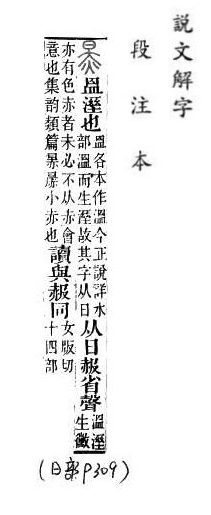 説文解字
段注本
㬈 昷溼也昷各本作溫今正說詳水部溫而生溼故其字从日从日赧省聲溫溼生黴
亦有色赤者未必不从赤會意也集韵類篇㬈㬈小赤也讀與赧同女版切十四部
(日部P309)